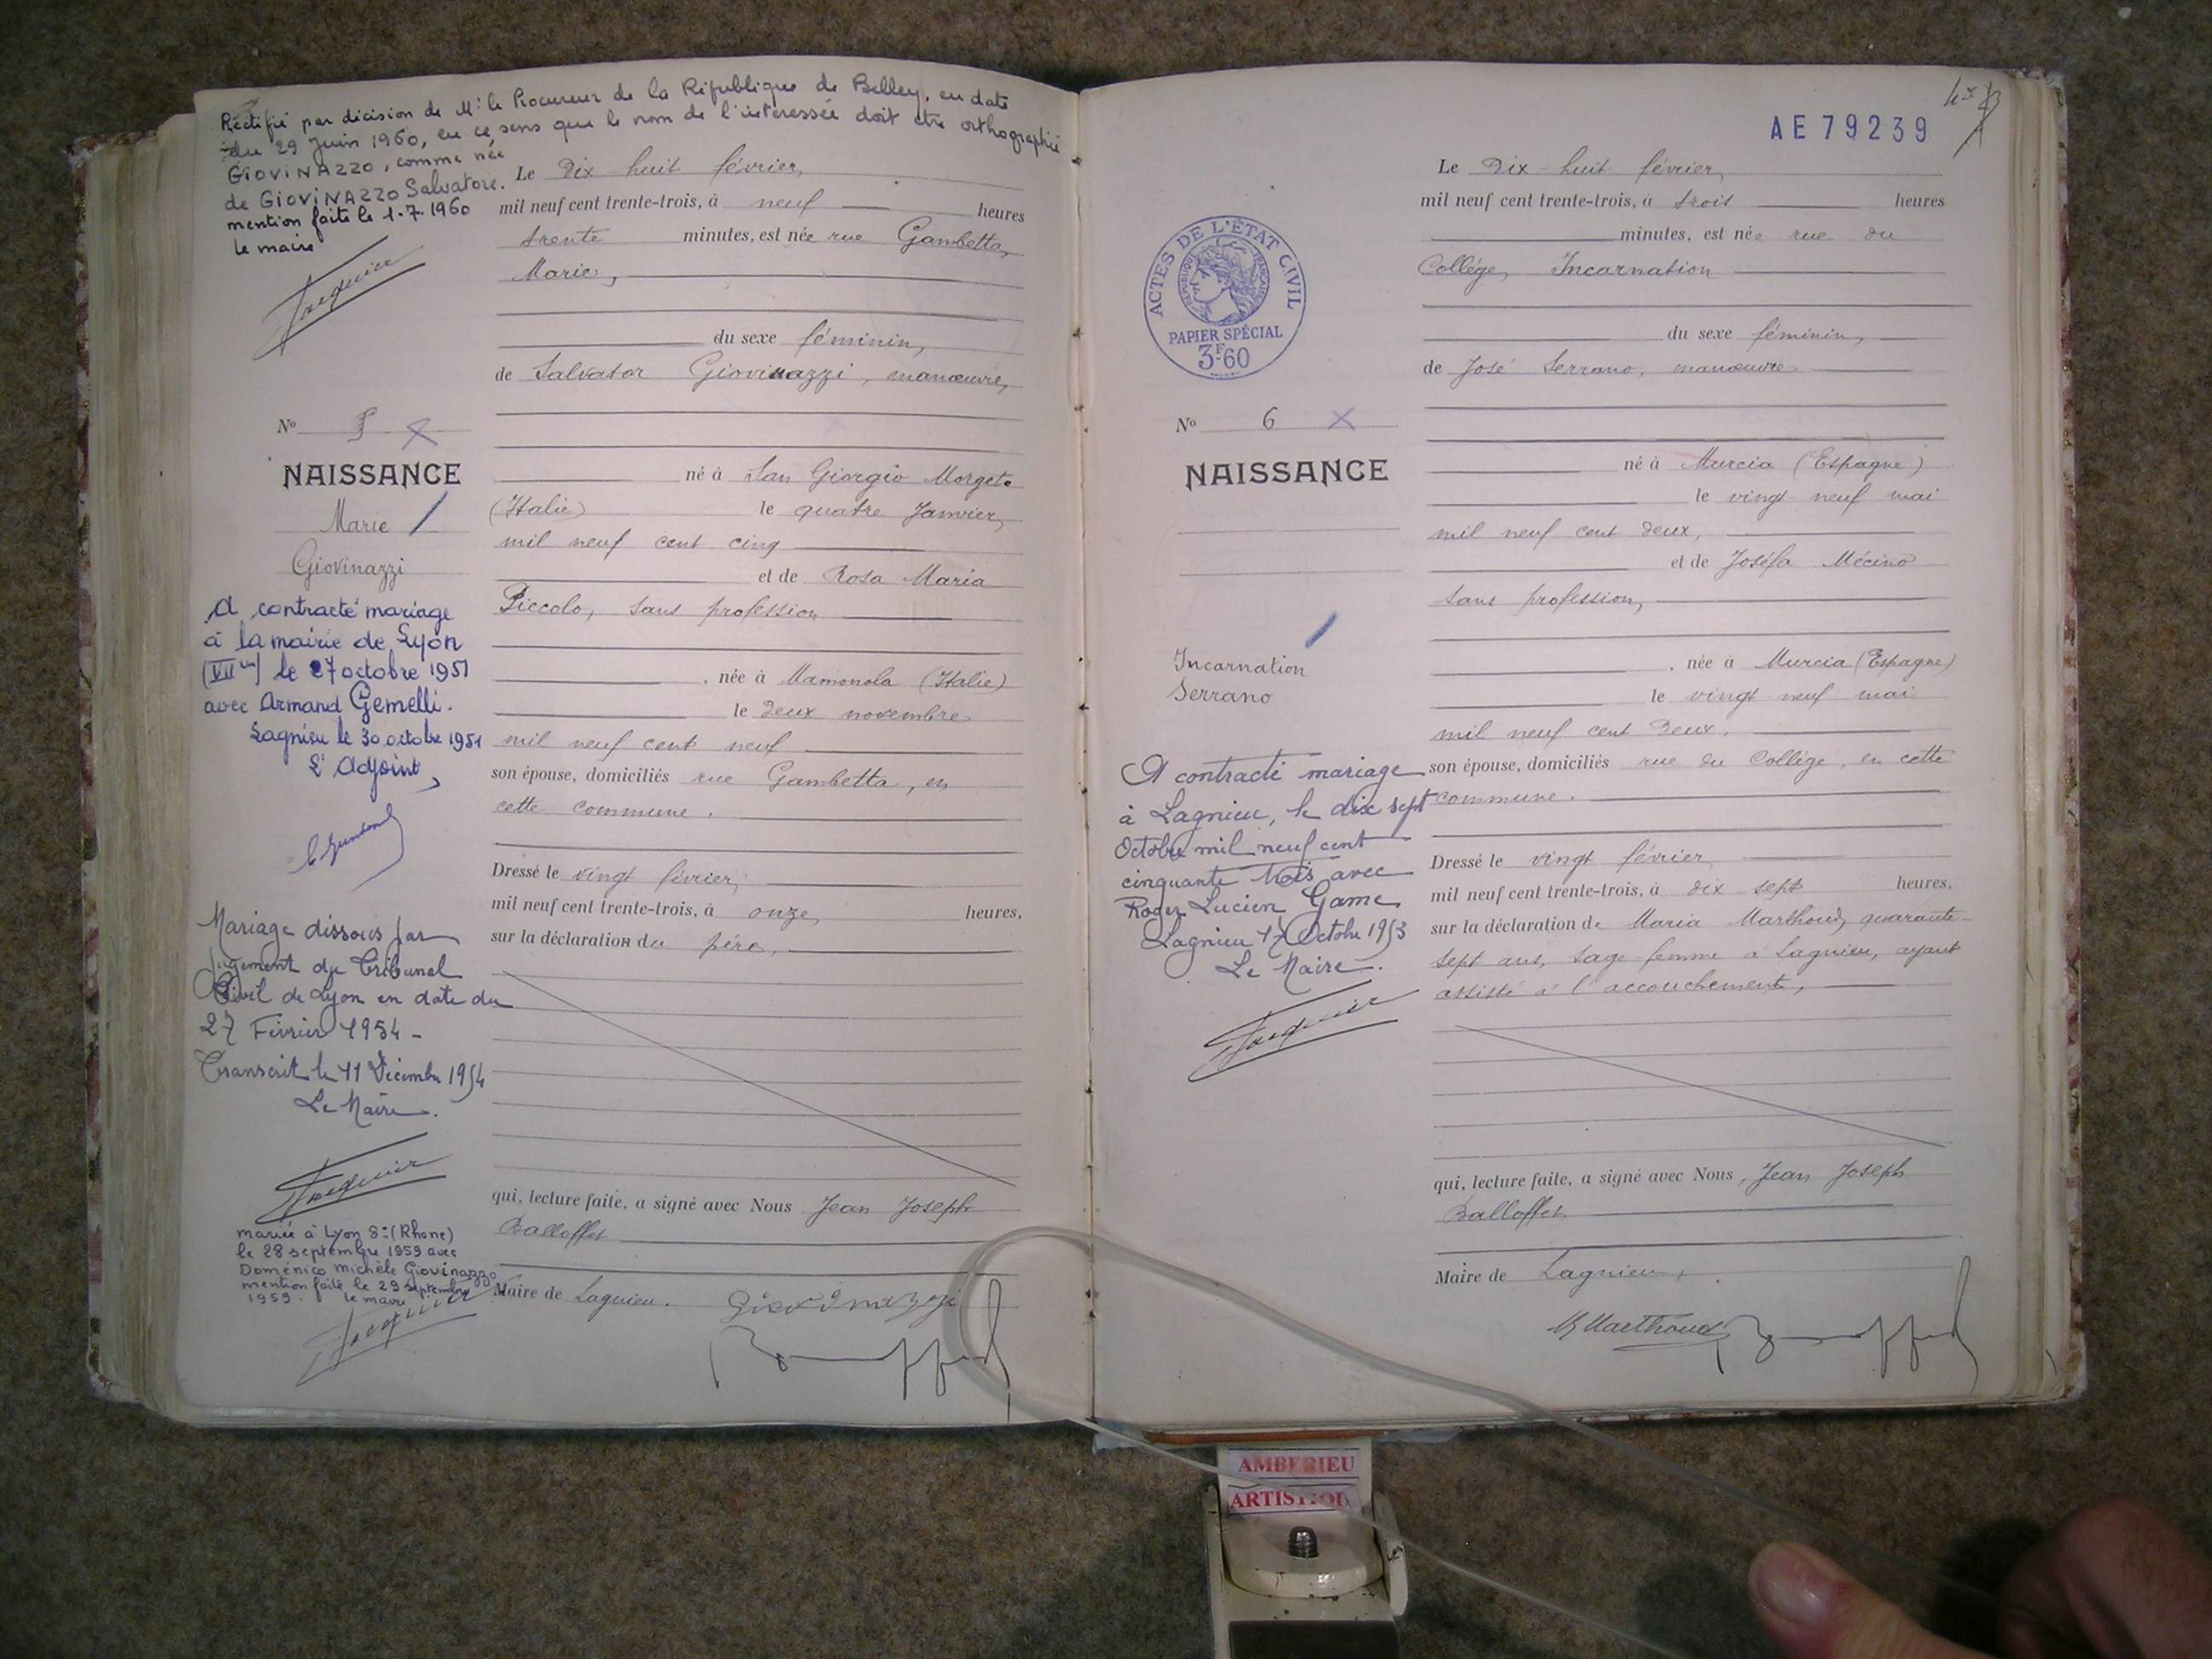 Rectifié par décision de Mr le Procureur de la République de Belley, en date
du 29 Juin 1960, en ce sens que le nom de l'intéressée doit être orthographié
GIOVINAZZO, comme née
de GIOVINAZZO Salvatore.
mention faite le 1.7.1960
le maire
N° 5
NAISSANCE
Marie
Giovinazzi
A contracté mariage
à la mairie de Lyon
(VIIme) le 27 octobre 1951
avec Armand Gemelli.
Lagnieu le 30 octobre 1951
L'Adjoint,
Mariage dissous par
jugement du Tribunal
Civil de Lyon en date du
27 Février 1954 -
Transcrit le 11 Décembre 1954
Le Maire.
mariée à Lyon 8e (Rhône)
le 28 septembre 1959 avec
Doménico Michèle Giovinazzo
mention faite le 29 septembre
1959. le maire
Le Dix huit février,
mil neuf cent trente-trois, à neuf heures
trente minutes, est née rue Gambetta,
Marie,
du sexe féminin,
de Salvator Giovinazzi, manœuvre,
né à San Giorgio Morgeto
(Italie) le quatre Janvier,
mil neuf cent cinq
et de Rosa Maria
Piccolo, sans profession
, née à Mamonola (Italie)
le Deux novembre
mil neuf cent neuf
son épouse, domiciliés rue Gambetta, en
cette commune.
Dressé le vingt février,
mil neuf cent trente-trois, à onze heures,
sur la déclaration du père,
qui, lecture faite, a signé avec Nous Jean Joseph
Balloffet
Maire de Lagnieu.
Giovinazzi
AE79239
ACTES DE L'ÉTAT CIVIL
RÉPUBLIQUE FRANÇAISE
PAPIER SPÉCIAL
3F60
N° 6
NAISSANCE
Incarnation
Serrano
A contracté mariage
à Lagnieu, le dix sept
Octobre mil neuf cent
cinquante trois avec
Roger Lucien Game
Lagnieu 17 Octobre 1953
Le Maire.
Le Dix-huit février,
mil neuf cent trente-trois, à trois heures
minutes, est née rue du
Collège, Incarnation
du sexe féminin,
de José Serrano, manœuvre
né à Murcia (Espagne)
le vingt neuf mai
mil neuf cent deux,
et de Joséfa Mécino
sans profession,
, née à Murcia (Espagne)
le vingt neuf mai
mil neuf cent Deux,
son épouse, domiciliés rue du Collège, en cette
commune.
Dressé le vingt février
mil neuf cent trente-trois, à dix sept heures,
sur la déclaration de Maria Marthoud, quarante-
sept ans, sage-femme à Lagnieu, ayant
assisté à l'accouchement,
qui, lecture faite, a signé avec Nous, Jean Joseph
Balloffet
Maire de Lagnieu,
M Marthoud
AMBERIEU
ARTISTIQUE